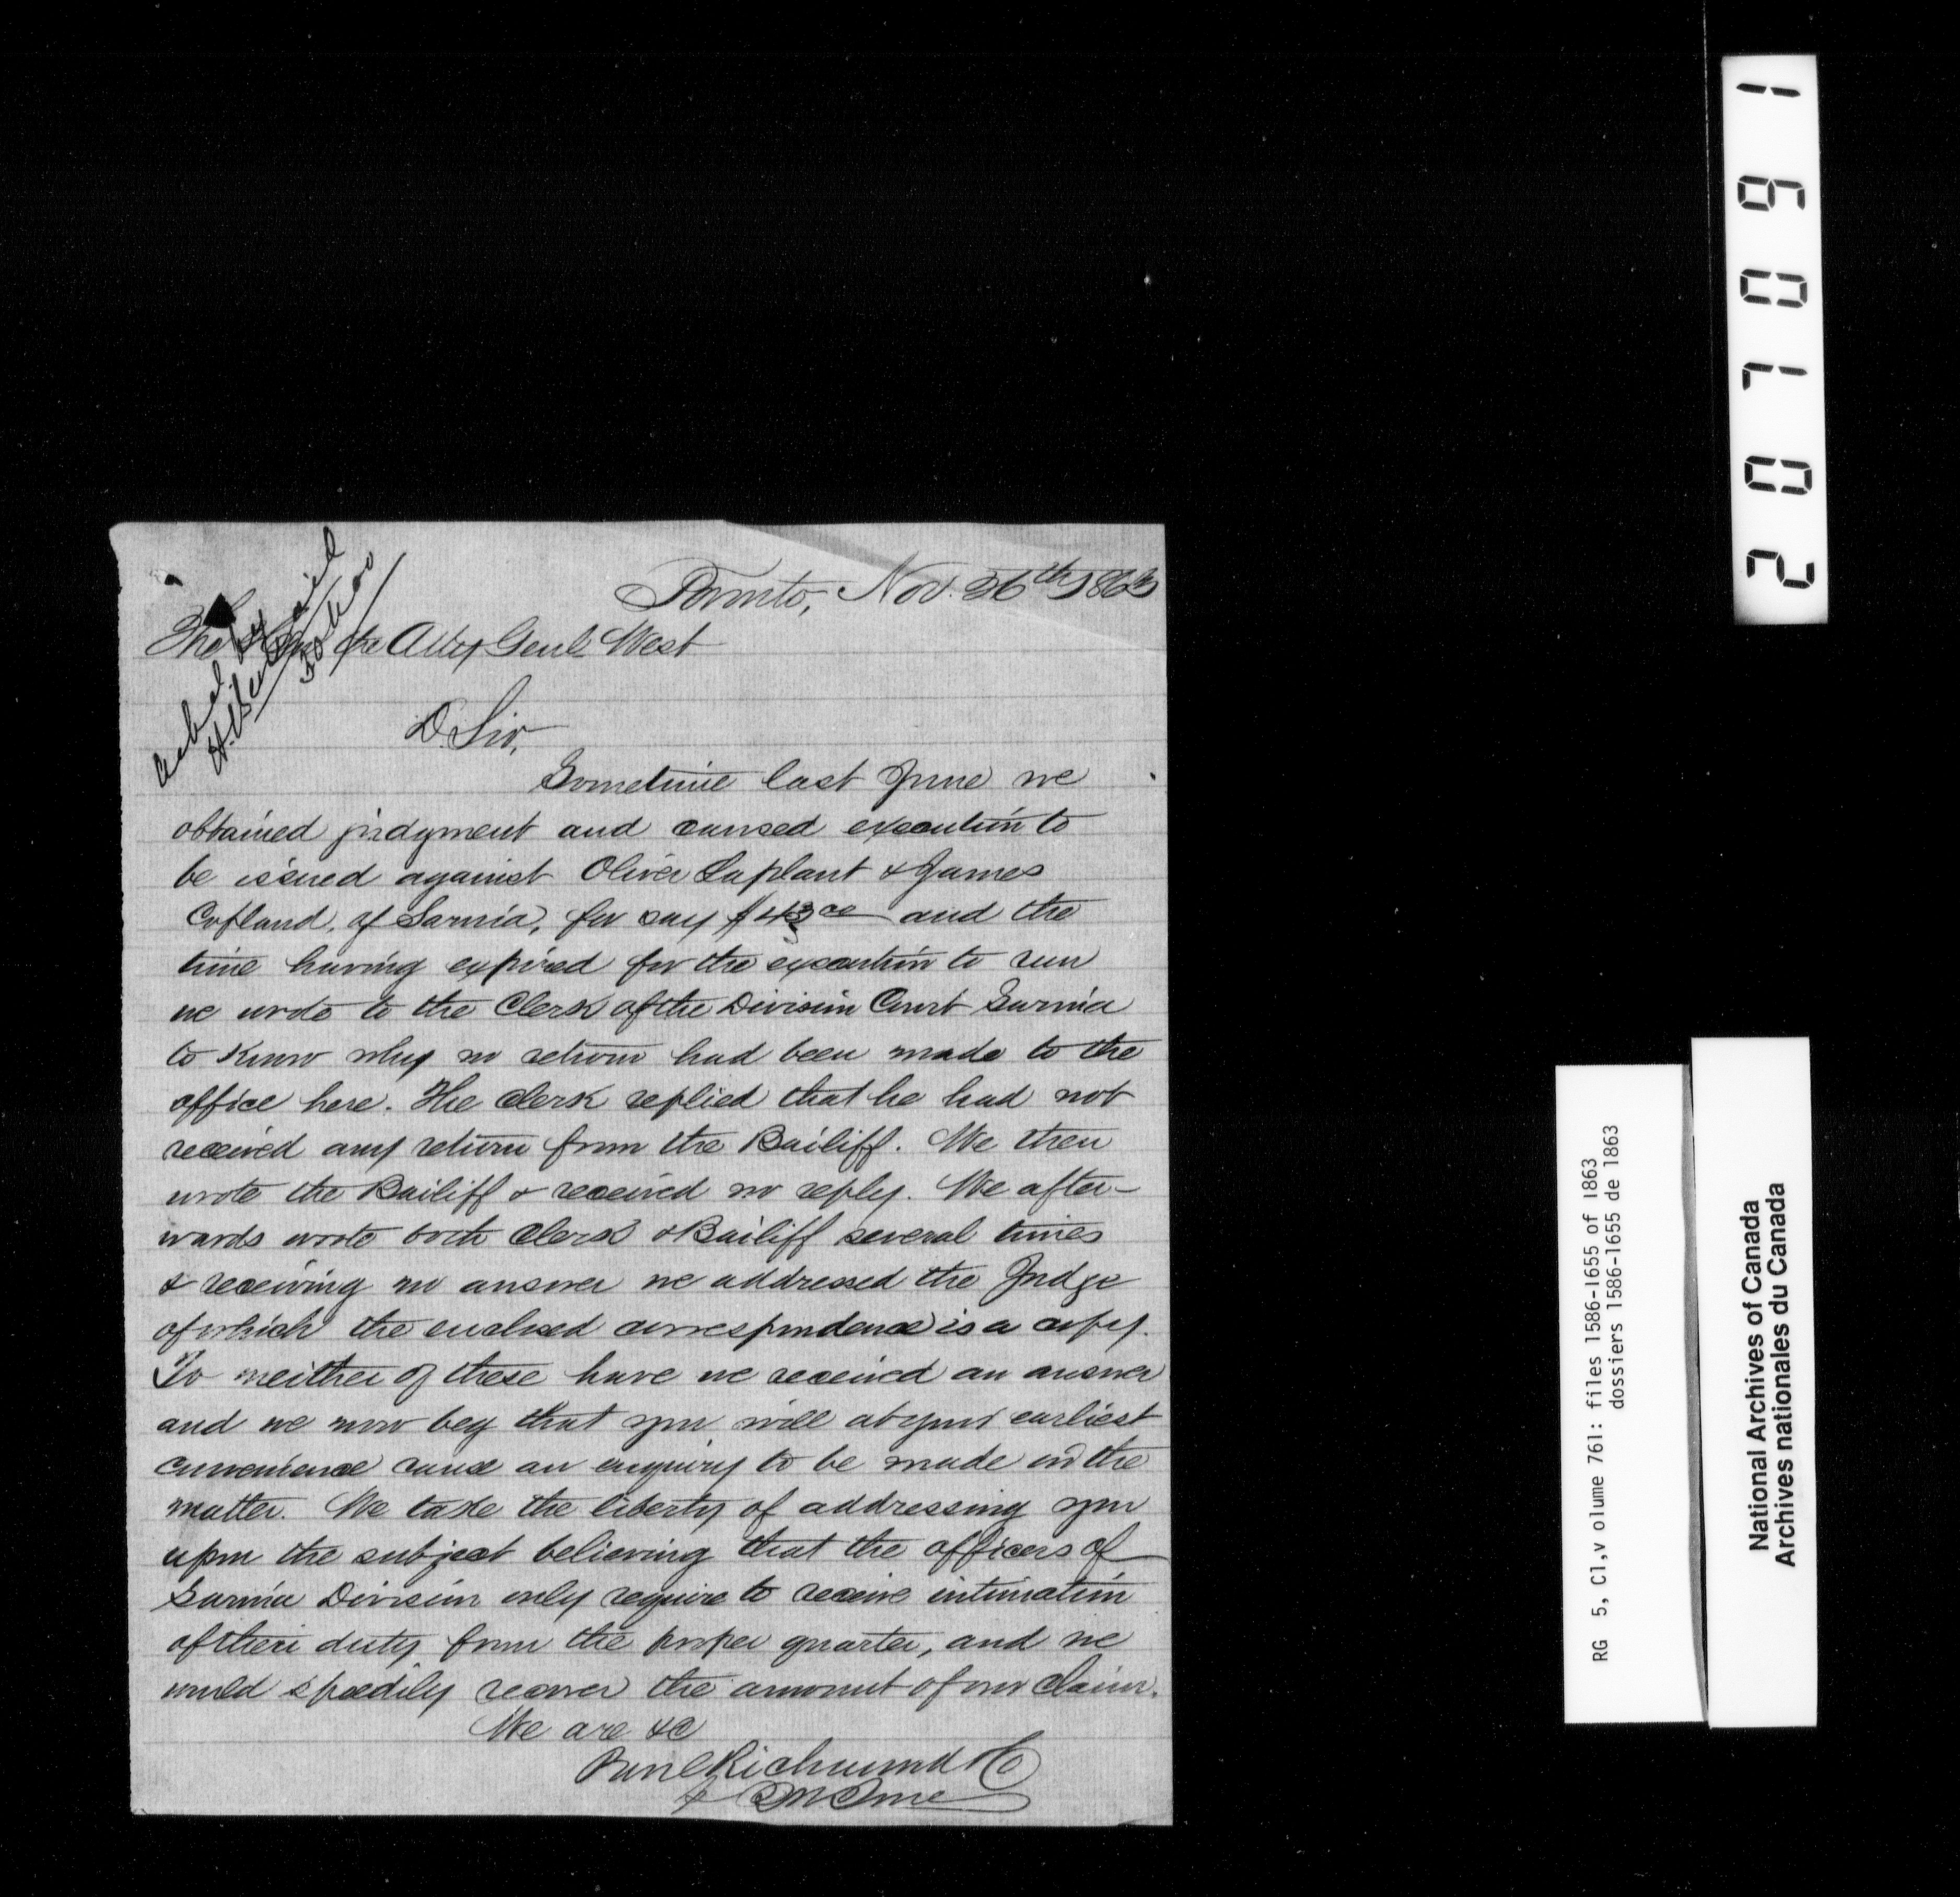 Toronto, Nov. 26th 1863
The Hon. the Atty Genl West
D. Sir,
Sometime last June we
obtained judgment and caused execution to
be issued against Oliver Laplant & James
Copland, of Sarnia, for say $43 00 and the
time having expired for the execution to run
we wrote to the Clerk of the Division Court Sarnia
to know why no return had been made to the
office here. The clerk replied that he had not
received any return from the Bailiff. We then
wrote the Bailiff & received no reply. We after-
wards wrote both Clerk & Bailiff several times
& receiving no answer we addressed the Judge
of which the enclosed correspondence is a copy.
To neither of these have we received an answer
and we now beg that you will at your earliest
convenience cause an enquiry to be made in the
matter. We take the liberty of addressing you
upon the subject believing that the officers of
Sarnia Division only require to receive intimation
of their duty from the proper quarter, and we
would speedily recover the amount of our claim.
We are &c
Richmond & Co
2 0 7 0 9 1
RG 5, C1,v olume 761: files 1586-1655 of 1863
dossiers 1586-1655 de 1863
National Archives of Canada
Archives nationales du Canada